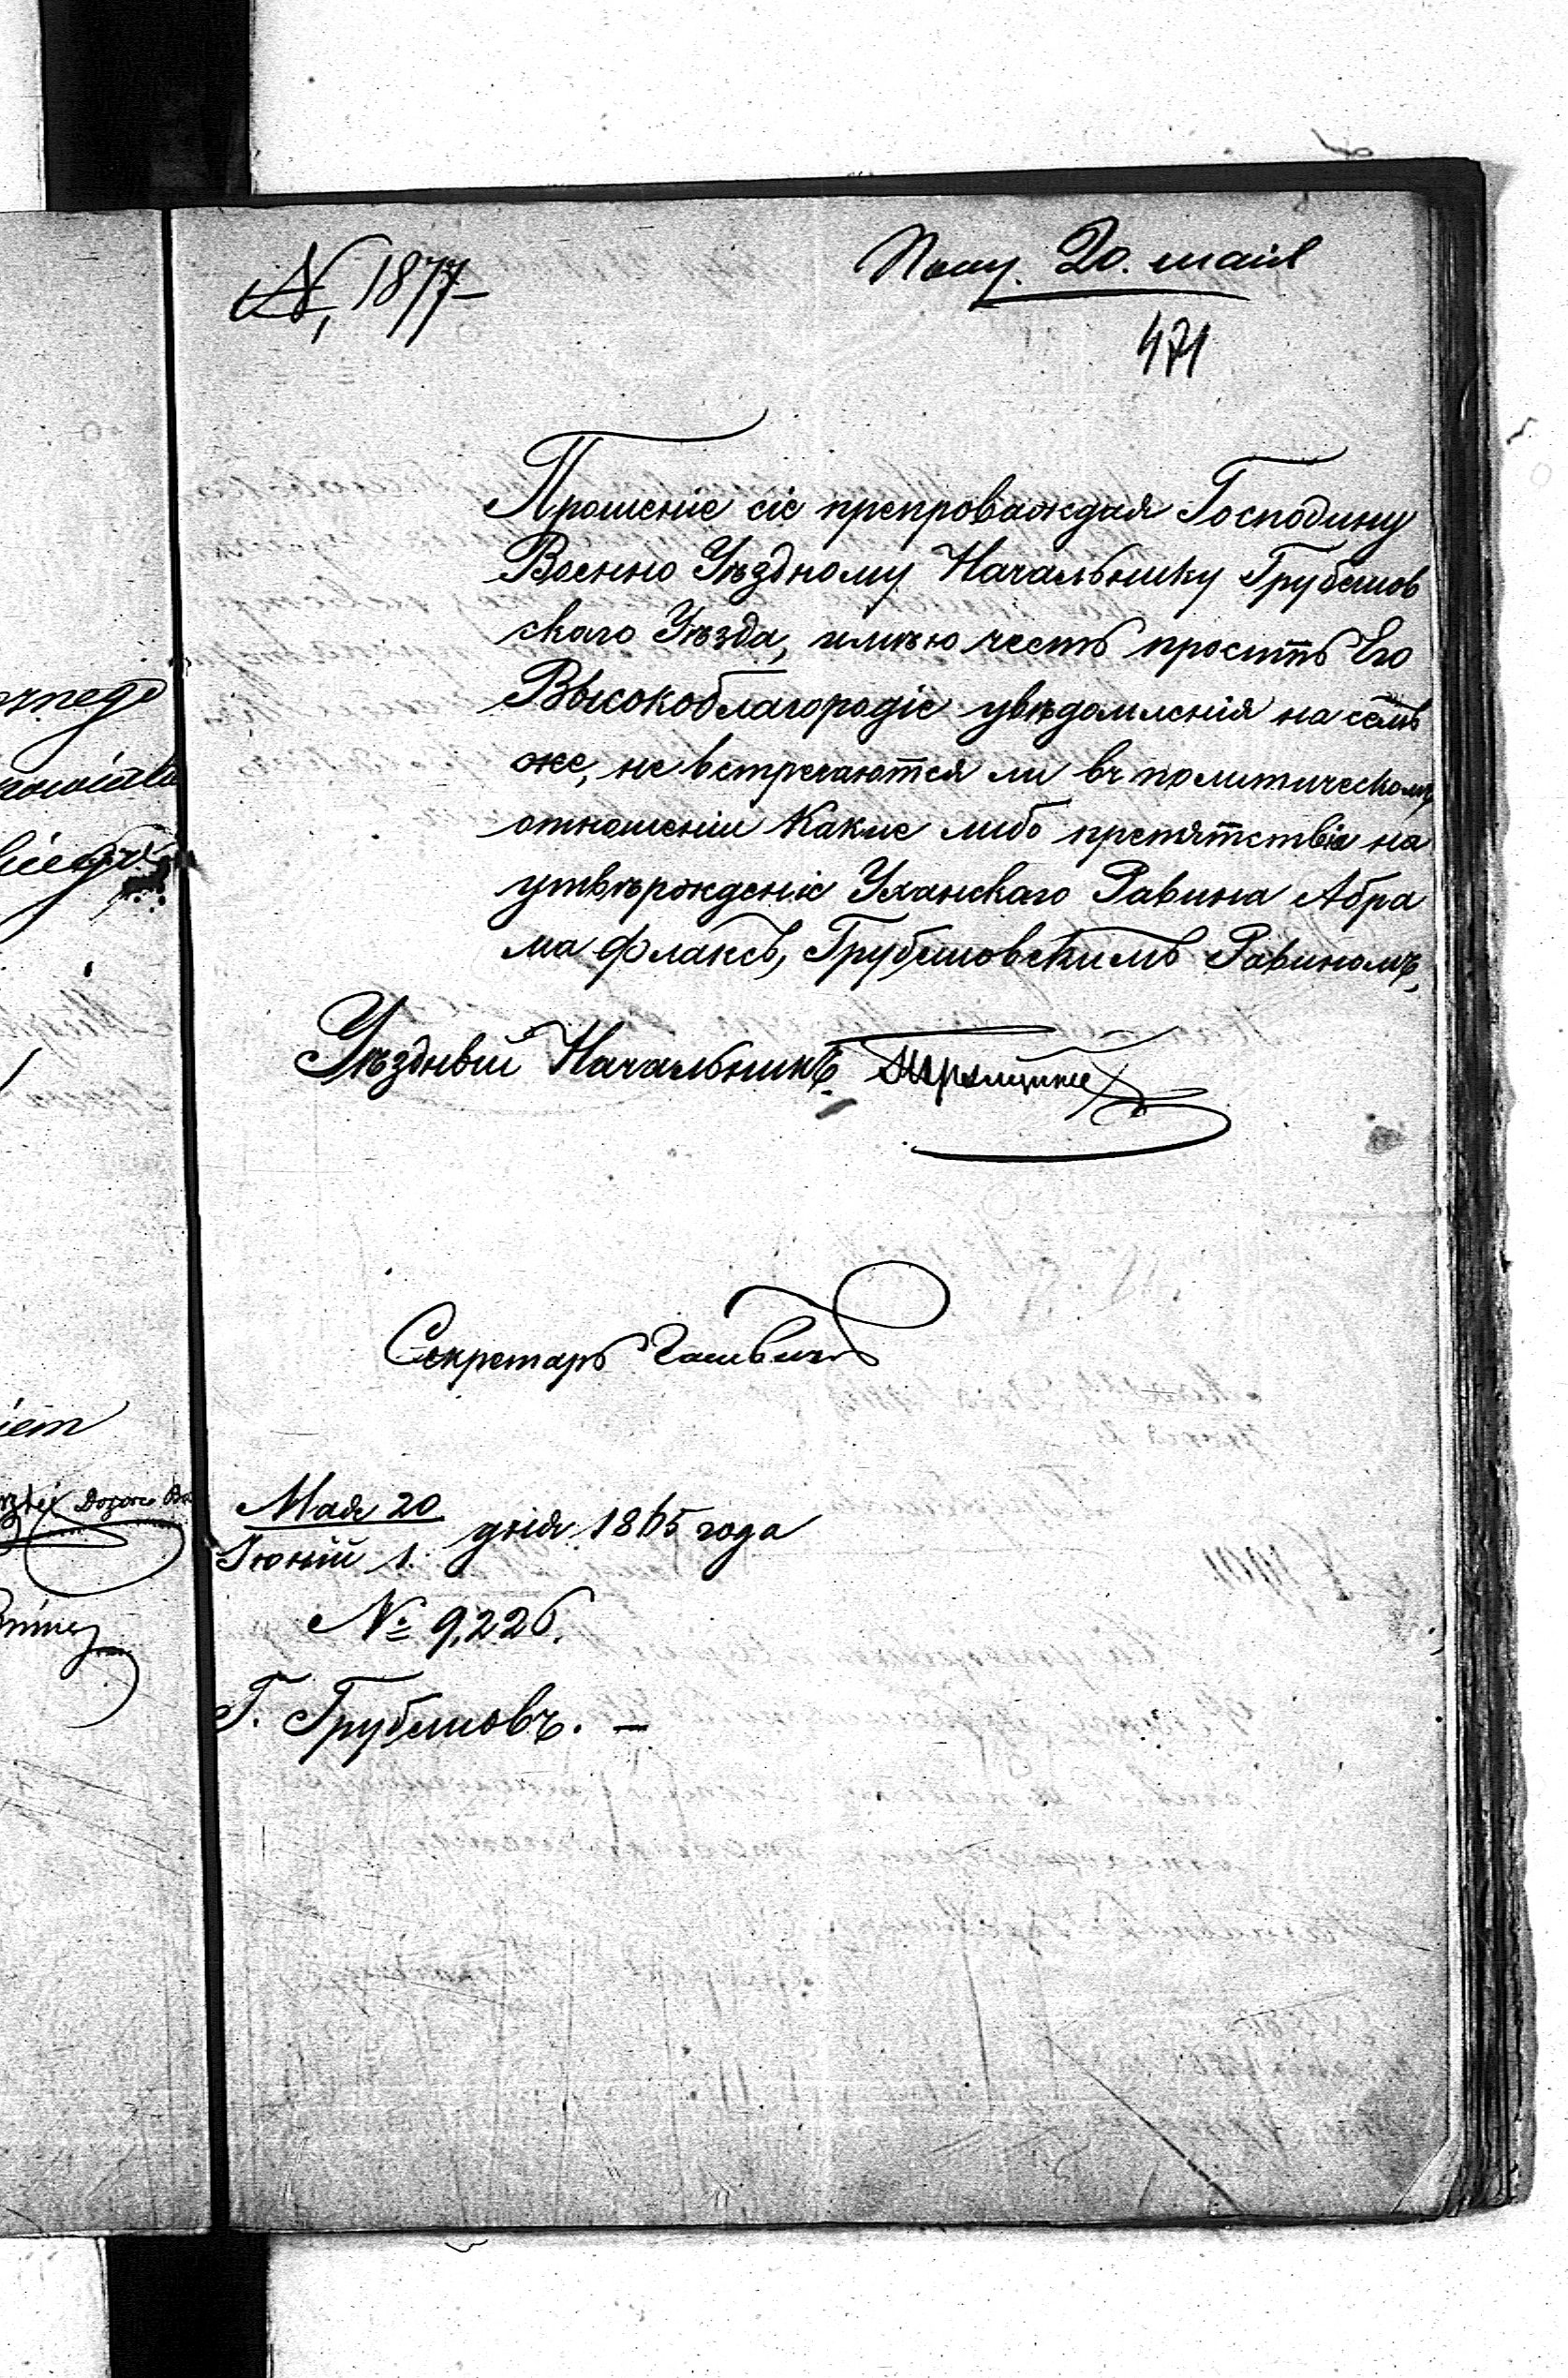 № 1877
Получ. 20. маія
471
Прошеніе сіе препровождая Господину
Военно Уѣздному Начальнику Грубешов
скаго Уѣзда, имѣю честь просить Его
Высокоблагородіе увѣдомленія на семъ
же, не встречаются ли въ политическомъ
отношеніи какие либо препятствія на
утвѣржденіе Уханскаго Равина Абра
ма Флаксъ, Грубешовскимъ Равиномъ,
Уѣздный Начальникъ
Секретарь
Мая 20
Іюній 1. дня 1865 года
№ 9,226.
Г. Грубешовъ. —